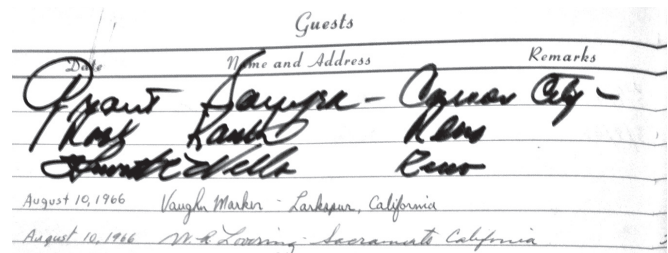 Guests
Date Name and Address Remarks
Grant Sawyer - Carson City -
Reno
Wells Reno
August 10, 1966 Vaughn Marker - Larkspur, California
August 10, 1966 W. R. Lovering - Sacramento California